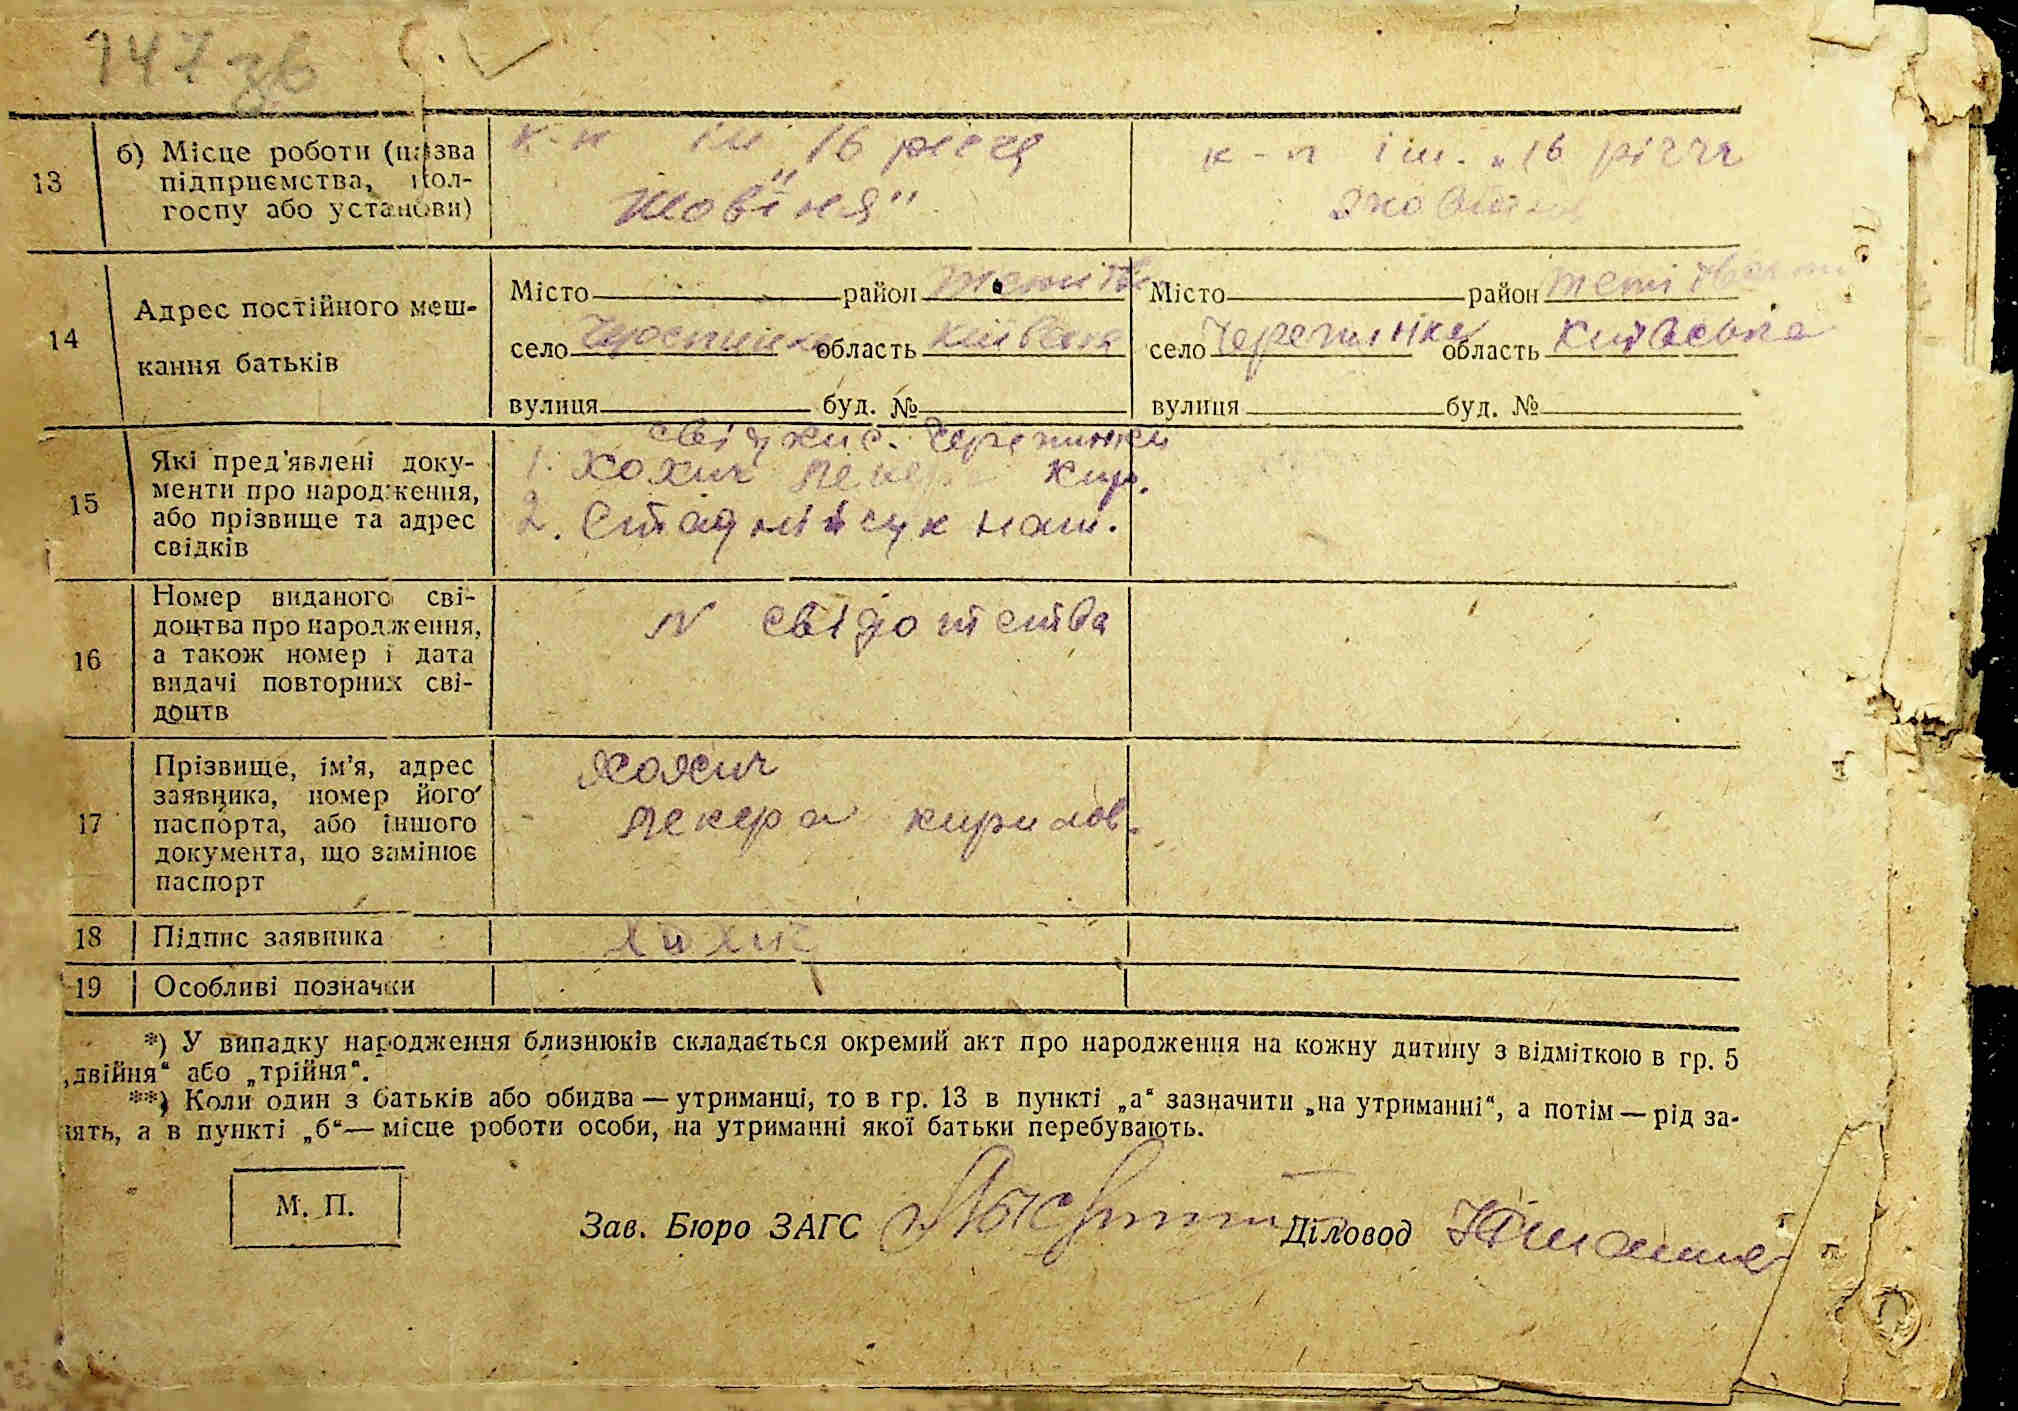 147 зв
13 б) Місце роботи (назва к-п ім. „16 річчя к-п ім. „16 річчя
підприємства, кол- Жовтня"
госпу або установи)
14 Адрес постійного меш-
кання батьків
Місто район Місто район
село область Київська село Черепинка область Київська
вулиця буд. № вулиця буд. №
свідки с. Черепинки
15 Які пред'явлені доку- 1. Хохич Кир.
менти про народження, 2. Стаднійчук
або прізвище та адрес
свідків
16 Номер виданого сві- N свідотства
доцтва про народження,
а також номер і дата
видачі повторних сві-
доцтв
17 Прізвище, ім'я, адрес Хохич
заявника, номер його кирилов.
паспорта, або іншого
документа, що замінює
паспорт
18 Підпис заявника Хохич
19 Особливі позначки
*) У випадку народження близнюків складається окремий акт про народження на кожну дитину з відміткою в гр. 5
„двійня" або „трійня".
**) Коли один з батьків або обидва — утриманці, то в гр. 13 в пункті „а" зазначити „на утриманні", а потім — рід за-
нять, а в пункті „б" — місце роботи особи, на утриманні якої батьки перебувають.
М. П.
Зав. Бюро ЗАГС Діловод